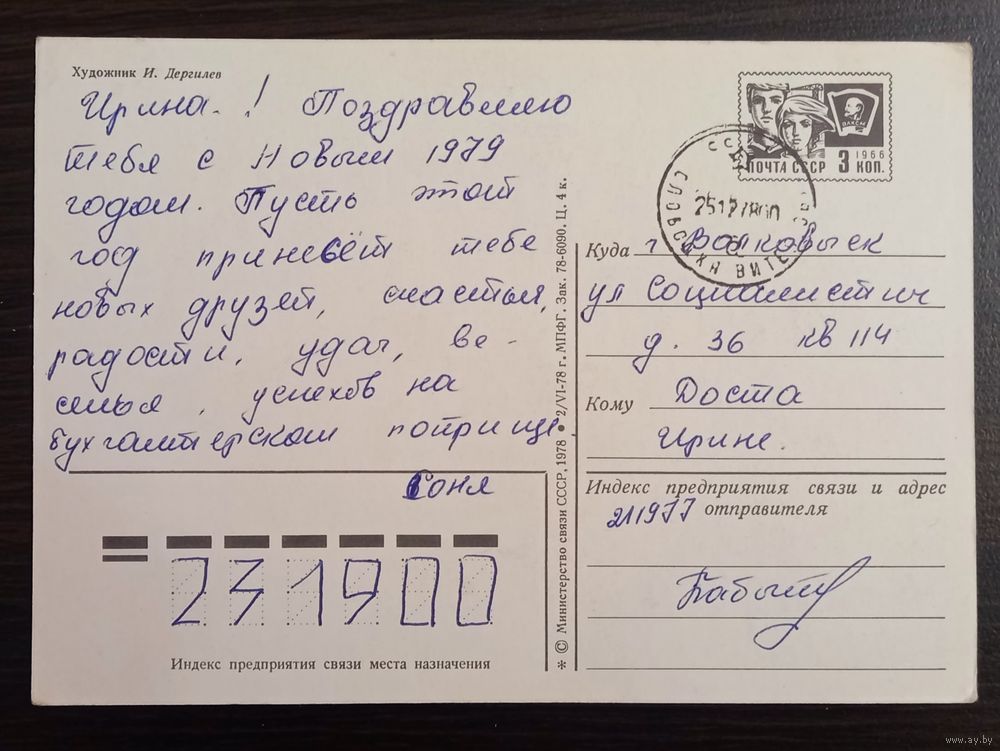 Художник И. Дергилев
Ирина! Поздравляю
тебя с Новым 1979
годом. Пусть этот
год принесёт тебе
новых друзей, счастья,
радости, удач, ве-
селья, успехов на
бухгалтерском поприще.
Соня
ВЛКСМ
1966
ПОЧТА СССР 3 КОП.
Куда г Волковыск
ул Социалистич
д. 36 кв 114
Кому Доста
Ирине.
Индекс предприятия связи и адрес
отправителя
211977
231900
Индекс предприятия связи места назначения
* © Министерство связи СССР, 1978 • 2/VI-78 г. МПФГ. Зак. 78-6090. Ц. 4 к.
www.ay.by